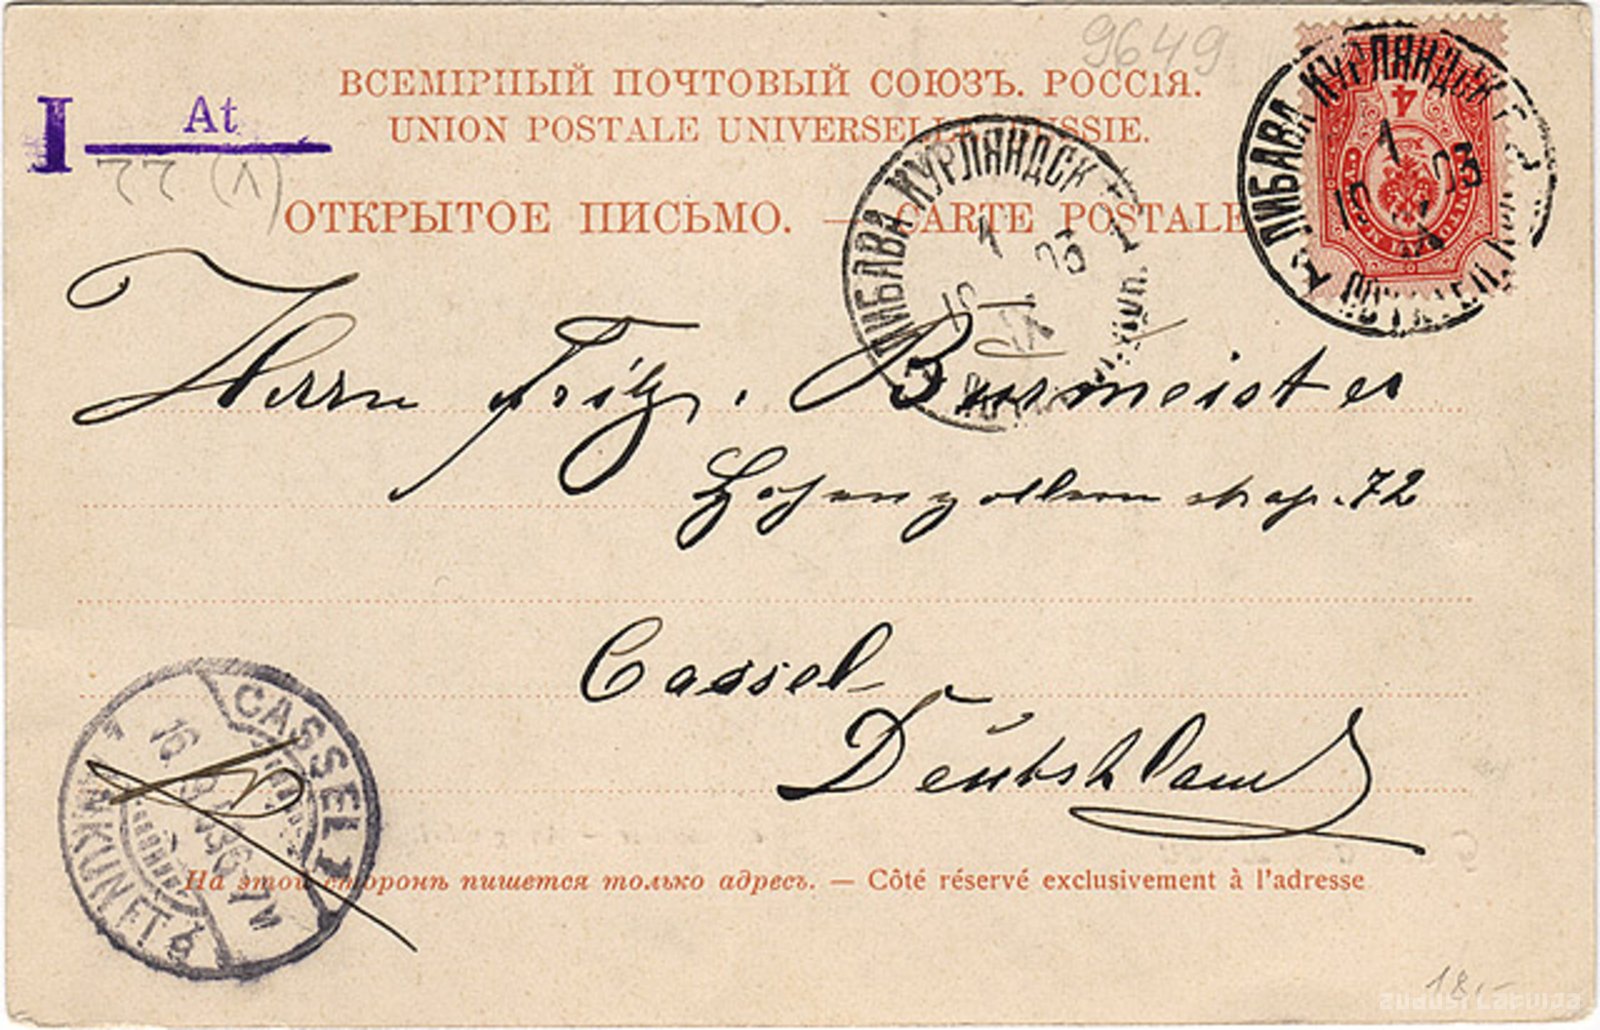 9649
ВСЕМІРНЫЙ ПОЧТОВЫЙ СОЮЗЪ. РОССІЯ.
UNION POSTALE UNIVERSELLE RUSSIE.
I At
ОТКРЫТОЕ ПИСЬМО. — CARTE POSTALE
ЛИБАВА КУРЛЯНДСК
1
03
4
ЛИБАВА КУРЛЯНДСК
1
03
Herrn Fritz. Burmeister
Hohenzollernstraße. 72
Cassel
Deutschland
CASSEL 1
ANKUNFT
16
На этой сторонѣ пишется только адресъ. — Côté réservé exclusivement à l'adresse
18.-
zudusi Latvija